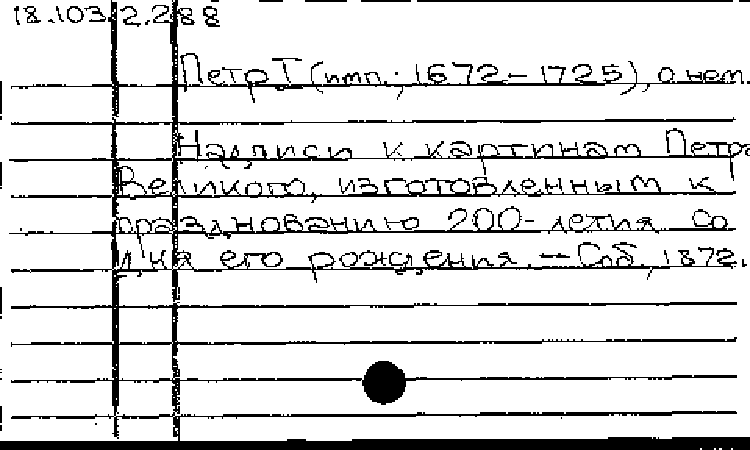 18.103.2.288
Петр I (имп.; 1672-1725), о нем.
Надписи к картинам Петра
Великого, изготовленным к
празднованию 200-летия со
дня его рождения. - Спб, 1872.